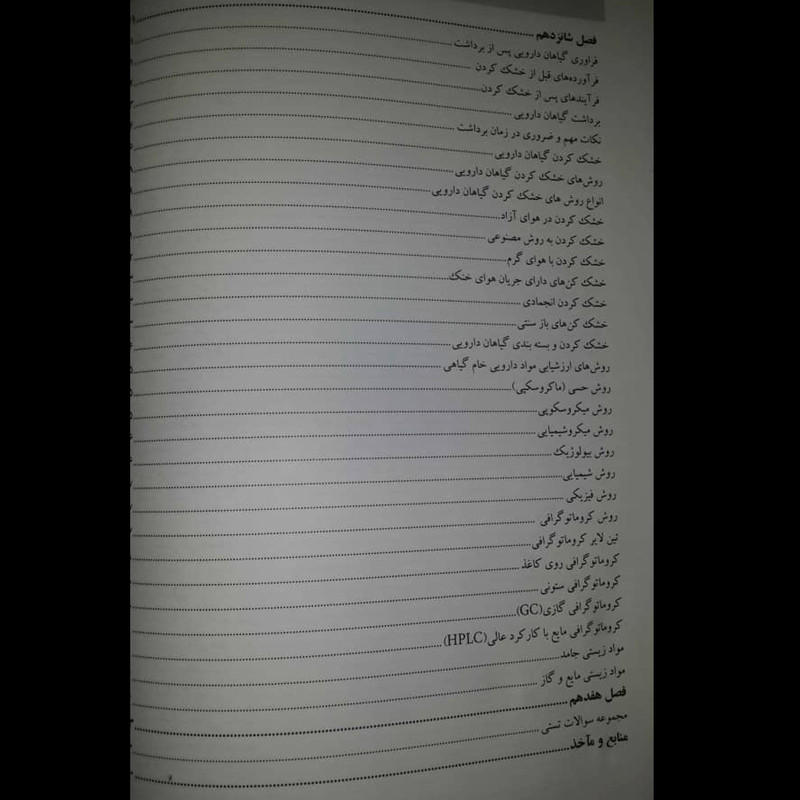 فصل شانزدهم
فراوری گیاهان دارویی پس از برداشت
فرآورده‌های قبل از خشک کردن
فرآیندهای پس از خشک کردن
برداشت گیاهان دارویی
نکات مهم و ضروری در زمان برداشت
خشک کردن گیاهان دارویی
روش‌های خشک کردن گیاهان دارویی
انواع روش های خشک کردن گیاهان دارویی
خشک کردن در هوای آزاد
خشک کردن به روش مصنوعی
خشک کردن با هوای گرم
خشک کن‌های دارای جریان هوای خنک
خشک کردن انجمادی
خشک کن‌های باز سنتی
خشک کردن و بسته بندی گیاهان دارویی
روش‌های ارزشیابی مواد دارویی خام گیاهی
روش حسی (ماکروسکپی)
روش میکروسکوپی
روش میکروشیمیایی
روش بیولوژیک
روش شیمیایی
روش فیزیکی
روش کروماتوگرافی
تین لایر کروماتوگرافی
کروماتوگرافی روی کاغذ
کروماتوگرافی ستونی
کروماتوگرافی گازی(GC)
کروماتوگرافی مایع با کارکرد عالی(HPLC)
مواد زیستی جامد
مواد زیستی مایع و گاز
فصل هفدهم
مجموعه سوالات تستی
منابع و مآخذ